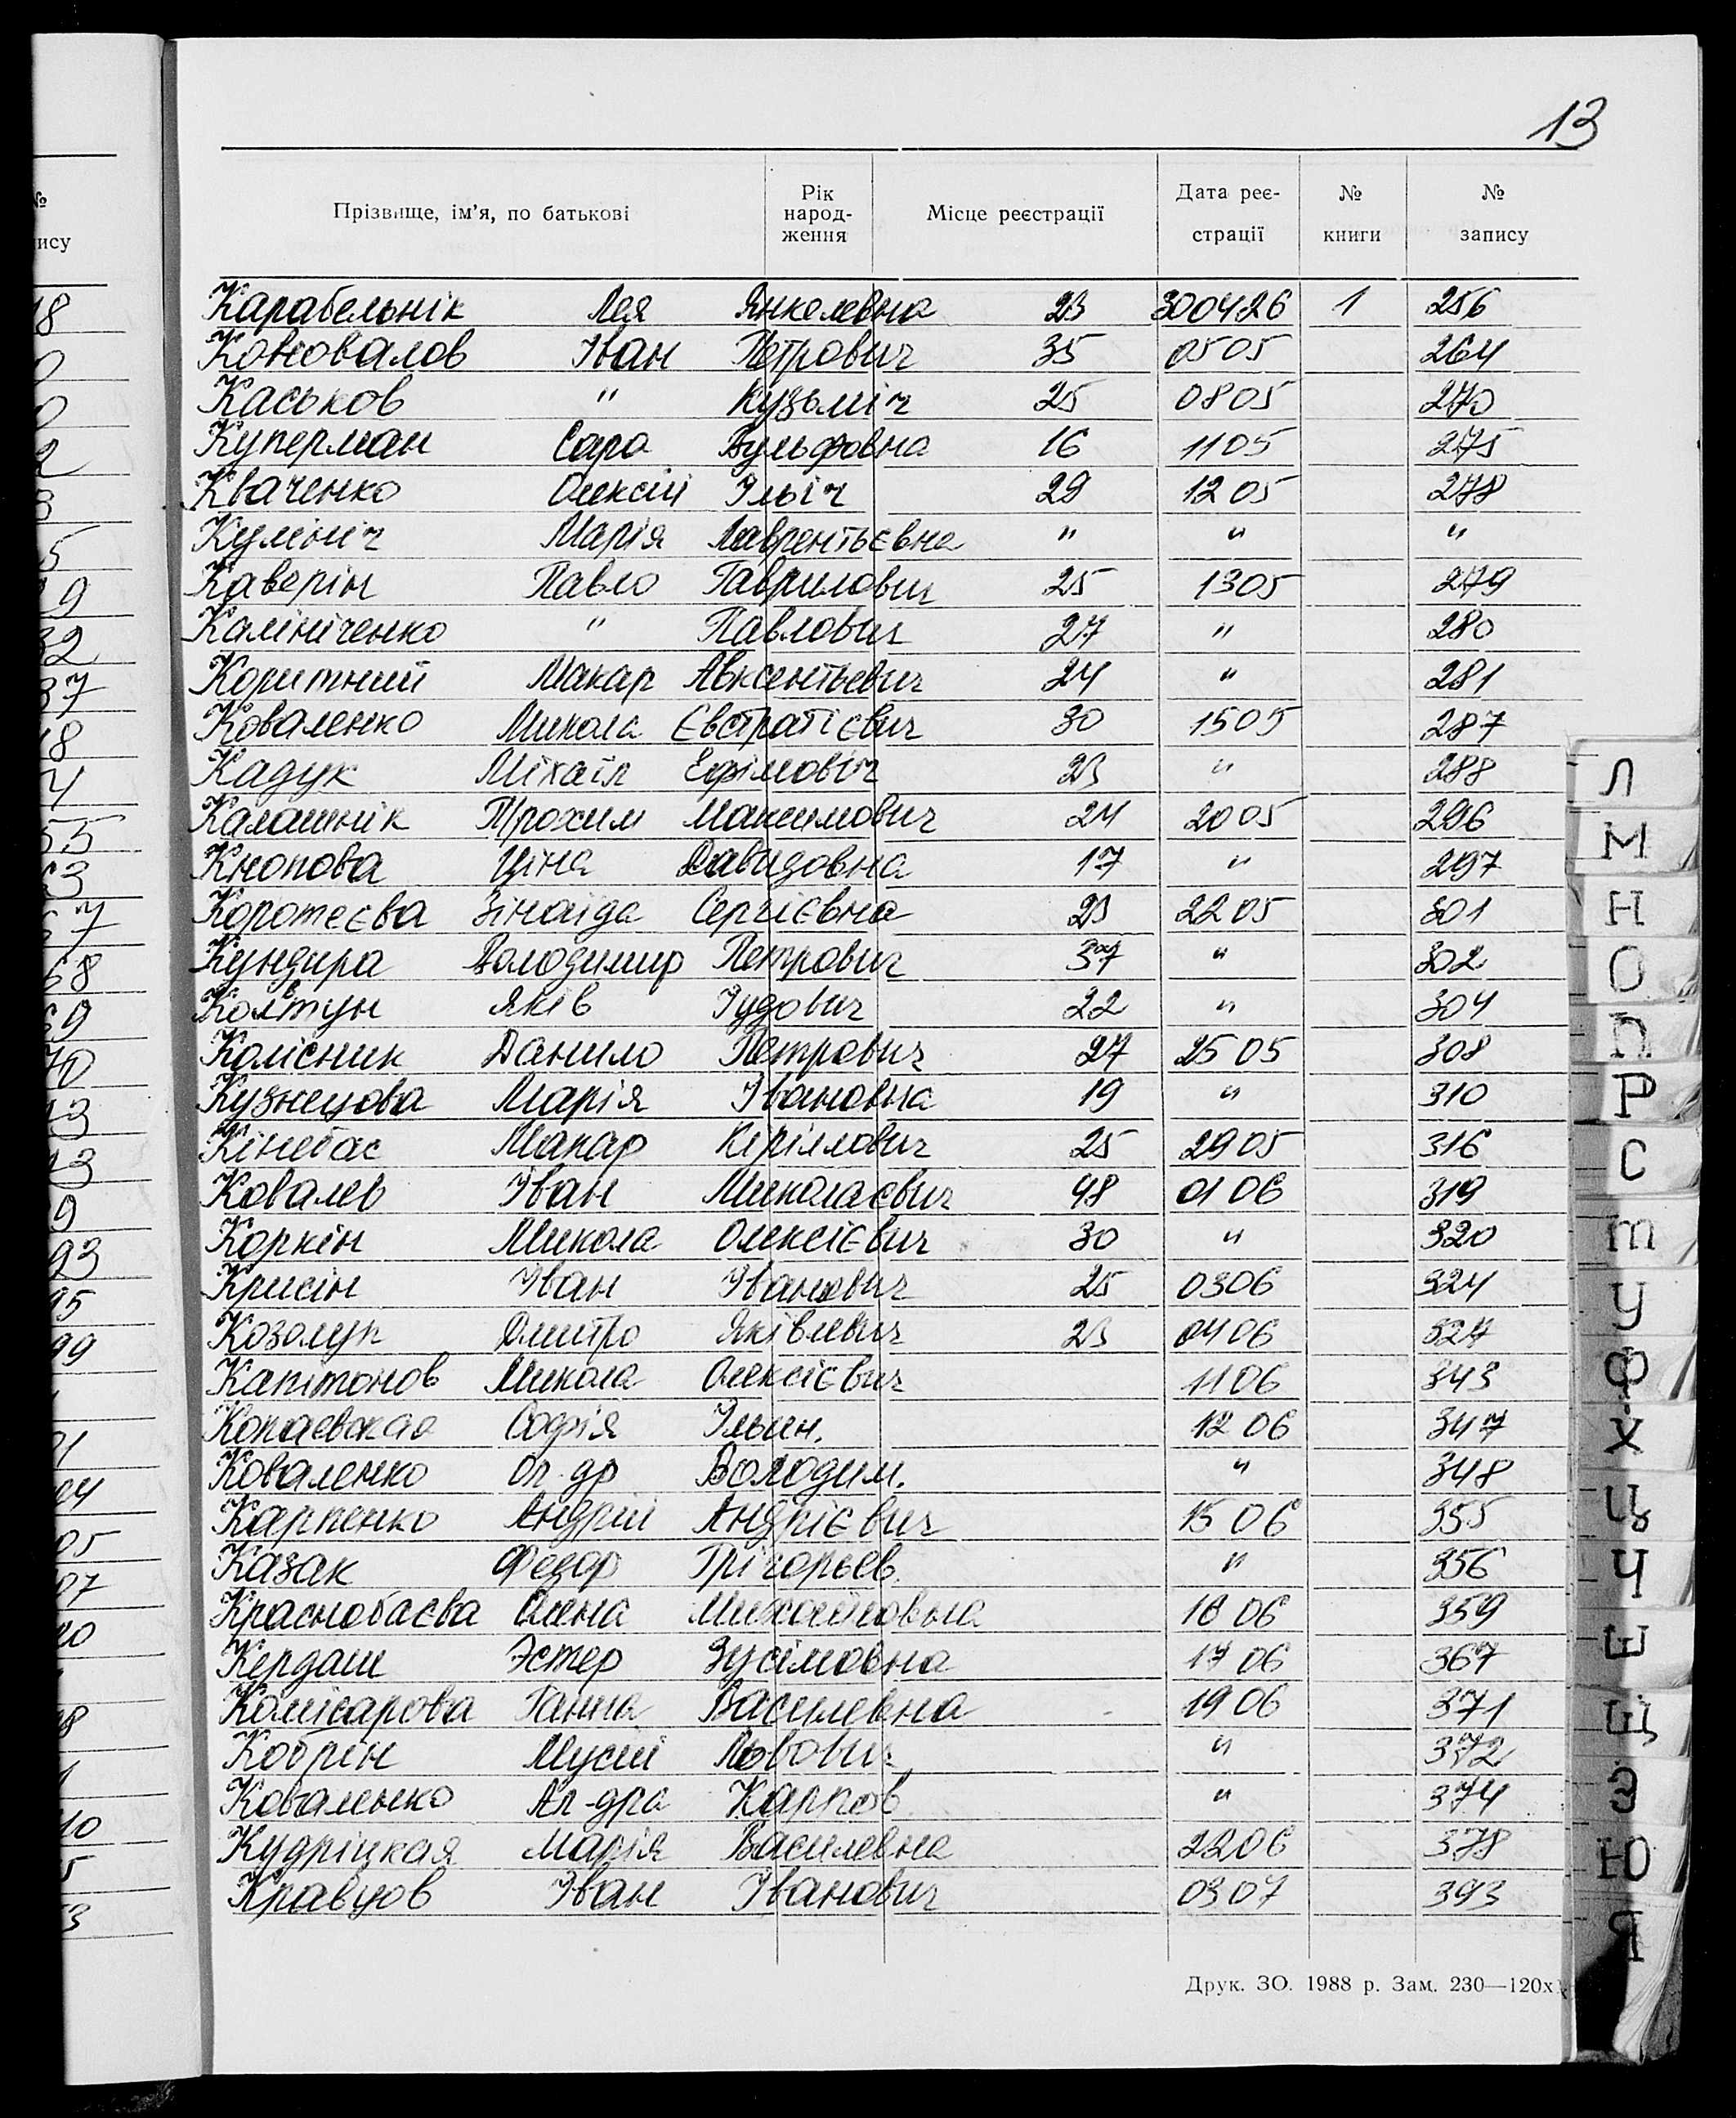 13
Прізвище, ім'я, по батькові | Рік народ-ження | Місце реєстрації | Дата реє-страції | № книги | № запису
Карабельнік Лея Янкелевна 23 300426 1 256
Коновалов Іван Петрович 35 0505 264
Каськов " Кузьміч 25 0805 270
Куперман Сара Вульфовна 16 1105 275
Кваченко Олексій Ільіч 29 1205 278
Кулініч Марія Лаврентьєвна " " "
Каверін Павло Гаврилович 25 1305 279
Калініченко " Павлович 27 " 280
Коритний Макар Авксентьевич 24 " 281
Коваленко Микола Євстратієвич 30 1505 287
Кадук Міхаіл Ефімовіч 23 " 288
Калашнік Трохим Максимович 24 2005 296
Кнопова Ціна Давидовна 17 " 297
Коротеєва Зінаіда Сергієвна 23 2205 301
Кундира Володимир Петрович 37 " 302
Колтун Яків Іудович 22 " 304
Колісник Данило Петрович 27 2505 308
Кузнецова Марія Івановна 19 " 310
Кінебас Макар Кірілович 25 2905 316
Ковалев Іван Миколаєвич 48 0106 319
Коркін Микола Олексієвич 30 " 320
Крисін Іван Іванович 25 0306 324
Козолуп Дмитро Яківлевич 23 0406 327
Капітонов Микола Олексієвич 1106 343
Копаевская Софія Ільин. 1206 347
Коваленко Ол-др Володим. " 348
Карпенко Андрій Андрієвич 1506 355
Казак Федор Грігорьев. " 356
Краснобаєва Олена Михайловна 1606 359
Кердаш Эстер Зусімовна 1706 367
Комісарова Ганна Василевна 1906 371
Кобрін Мусій Львович " 372
Коваленко Ал-дра Карпов. " 374
Кудріцкая Марія Василевна 2206 378
Кравцов Іван Іванович 0307 393
Друк. ЗО. 1988 р. Зам. 230—120х
Л
М
Н
О
П
Р
С
Т
У
Ф
Х
Ц
Ч
Ш
Щ
Э
Ю
Я